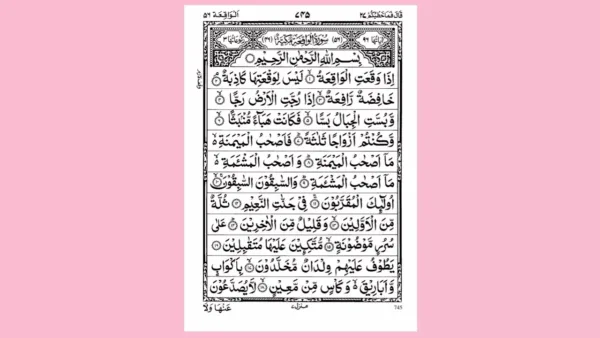 قَالَ فَمَا خَطْبُكُمْ ٢٧
٧٤٥
اَلْوَاقِعَة ٥٦
اٰيَاتُهَا ٩٦ (٥٦) سُوْرَةُ الْوَاقِعَةِ مَكِّيَّةٌ (٤٦) رُكُوْعَاتُهَا ٣
بِسْمِ اللّٰهِ الرَّحْمٰنِ الرَّحِيْمِ
اِذَا وَقَعَتِ الْوَاقِعَةُ ۙ١ لَيْسَ لِوَقْعَتِهَا كَاذِبَةٌ ۘ٢
خَافِضَةٌ رَّافِعَةٌ ۙ٣ اِذَا رُجَّتِ الْاَرْضُ رَجًّا ۙ٤
وَّبُسَّتِ الْجِبَالُ بَسًّا ۙ٥ فَكَانَتْ هَبَآءً مُّنْۢبَثًّا ۙ٦
وَّكُنْتُمْ اَزْوَاجًا ثَلٰثَةً ؕ٧ فَاَصْحٰبُ الْمَيْمَنَةِ ۙ
مَاۤ اَصْحٰبُ الْمَيْمَنَةِ ؕ٨ وَاَصْحٰبُ الْمَشْـَٔمَةِ ۙ
مَاۤ اَصْحٰبُ الْمَشْـَٔمَةِ ؕ٩ وَالسّٰبِقُوْنَ السّٰبِقُوْنَ ۚ١٠
اُولٰٓئِكَ الْمُقَرَّبُوْنَ ۚ١١ فِيْ جَنّٰتِ النَّعِيْمِ ١٢ ثُلَّةٌ
مِّنَ الْاَوَّلِيْنَ ۙ١٣ وَقَلِيْلٌ مِّنَ الْاٰخِرِيْنَ ؕ١٤ عَلٰى
سُرُرٍ مَّوْضُوْنَةٍ ۙ١٥ مُّتَّكِـِٕيْنَ عَلَيْهَا مُتَقٰبِلِيْنَ ١٦
يَطُوْفُ عَلَيْهِمْ وِلْدَانٌ مُّخَلَّدُوْنَ ۙ١٧ بِاَكْوَابٍ
وَّاَبَارِيْقَ ۙ وَكَاْسٍ مِّنْ مَّعِيْنٍ ۙ١٨ لَّا يُصَدَّعُوْنَ
عَنْهَا وَلَا
منزل ٧
745